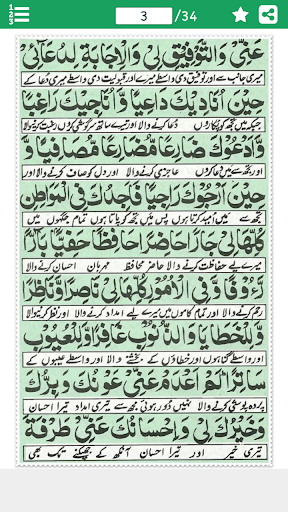 1 2 3
3 /34
عَنِّيْ وَالتَّوْفِيْقِ لِيْ وَالْاِجَابَةِ لِدُعَآئِيْ
میری جانب سے اور توفیق دی واسطے میرے اور قبولیت دی واسطے دعا کے
حِيْنَ اُنَادِيْكَ دَاعِيًا وَّاُنَاجِيْكَ رَاغِبًا
دعا کرنے والا اور تیرے ساتھ سرگوشی کروں
وَّاَدْعُوْكَ ضَارِعًا مُّضَارِعًا مُّصَافِيًا وَّ
عاجزی کرنے والا اور دل کو صاف کرنے والا اور
حِيْنَ اَرْجُوْكَ رَاجِيًا فَاَجِدُكَ فِي الْمَوَاطِنِ
تجھ سے میں امید کرتا ہوں پس میں تجھ کو پاتا ہوں تمام جگہوں میں
كُلِّهَا لِيْ جَارًا حَاضِرًا حَافِظًا حَفِيًّا بَارًّا
میرے لیے حفاظت کرنے والا حاضر محافظ مہربان احسان کرنے والا
رَءُوْفًا وَّفِي الْاُمُوْرِ كُلِّهَا لِيْ نَاصِرًا وَّنَاظِرًا
رحم کرنے والا اور تمام کاموں میں میرے لیے امداد کرنے والا اور نظر
وَّلِلْخَطَايَا وَالذُّنُوْبِ غَافِرًا وَّلِلْعُيُوْبِ
اور واسطے گناہوں اور خطاؤں کے بخشنے والا اور واسطے عیبوں کے
سَاتِرًا لَّمْ اَعْدَمْ عَنِّيْ عَوْنَكَ وَبِرَّكَ
پردہ پوشی کرنے والا نہیں دور ہوئی مجھ سے تیری امداد تیرا احسان
وَخَيْرَكَ لِيْ وَاِحْسَانَكَ عَنِّيْ طَرْفَةَ
تیری خیر اور تیرا احسان آنکھ کے جھپکنے تک بھی